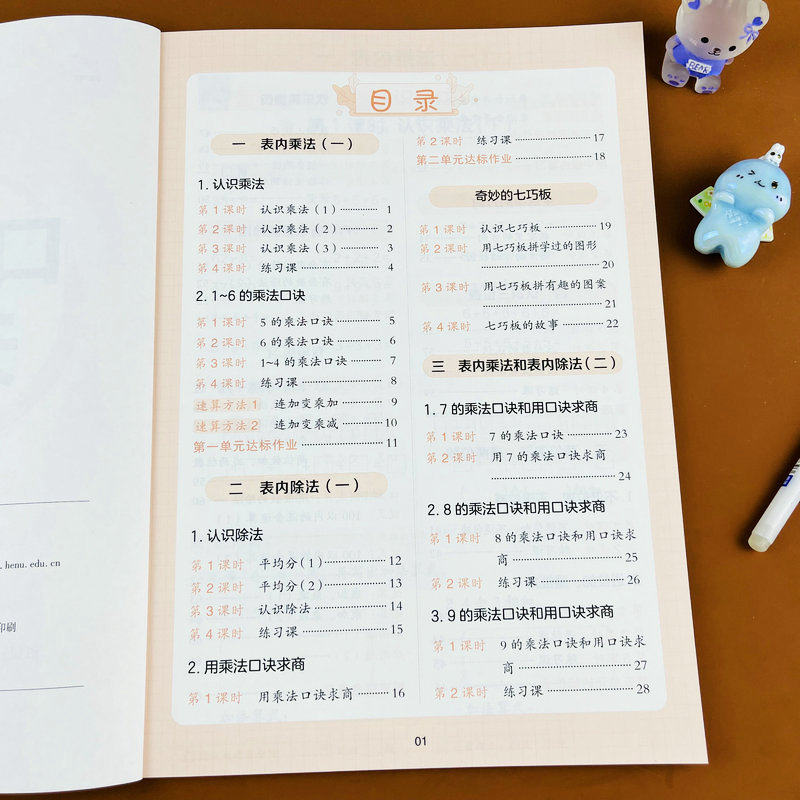 目录
一 表内乘法（一）
1. 认识乘法
第 1 课时 认识乘法（1）………… 1
第 2 课时 认识乘法（2）………… 2
第 3 课时 认识乘法（3）………… 3
第 4 课时 练习课………… 4
2. 1~6 的乘法口诀
第 1 课时 5 的乘法口诀………… 5
第 2 课时 6 的乘法口诀………… 6
第 3 课时 1~4 的乘法口诀………… 7
第 4 课时 练习课………… 8
速算方法 1 连加变乘加………… 9
速算方法 2 连加变乘减………… 10
第一单元达标作业………… 11
二 表内除法（一）
1. 认识除法
第 1 课时 平均分（1）………… 12
第 2 课时 平均分（2）………… 13
第 3 课时 认识除法………… 14
第 4 课时 练习课………… 15
2. 用乘法口诀求商
第 1 课时 用乘法口诀求商………… 16
第 2 课时 练习课………… 17
第二单元达标作业………… 18
奇妙的七巧板
第 1 课时 认识七巧板………… 19
第 2 课时 用七巧板拼学过的图形
………… 20
第 3 课时 用七巧板拼有趣的图案
………… 21
第 4 课时 七巧板的故事………… 22
三 表内乘法和表内除法（二）
1. 7 的乘法口诀和用口诀求商
第 1 课时 7 的乘法口诀………… 23
第 2 课时 用 7 的乘法口诀求商
………… 24
2. 8 的乘法口诀和用口诀求商
第 1 课时 8 的乘法口诀和用口诀求
商………… 25
第 2 课时 练习课………… 26
3. 9 的乘法口诀和用口诀求商
第 1 课时 9 的乘法口诀和用口诀求
商………… 27
第 2 课时 练习课………… 28
01
.henu.edu.cn
印刷
BEAR